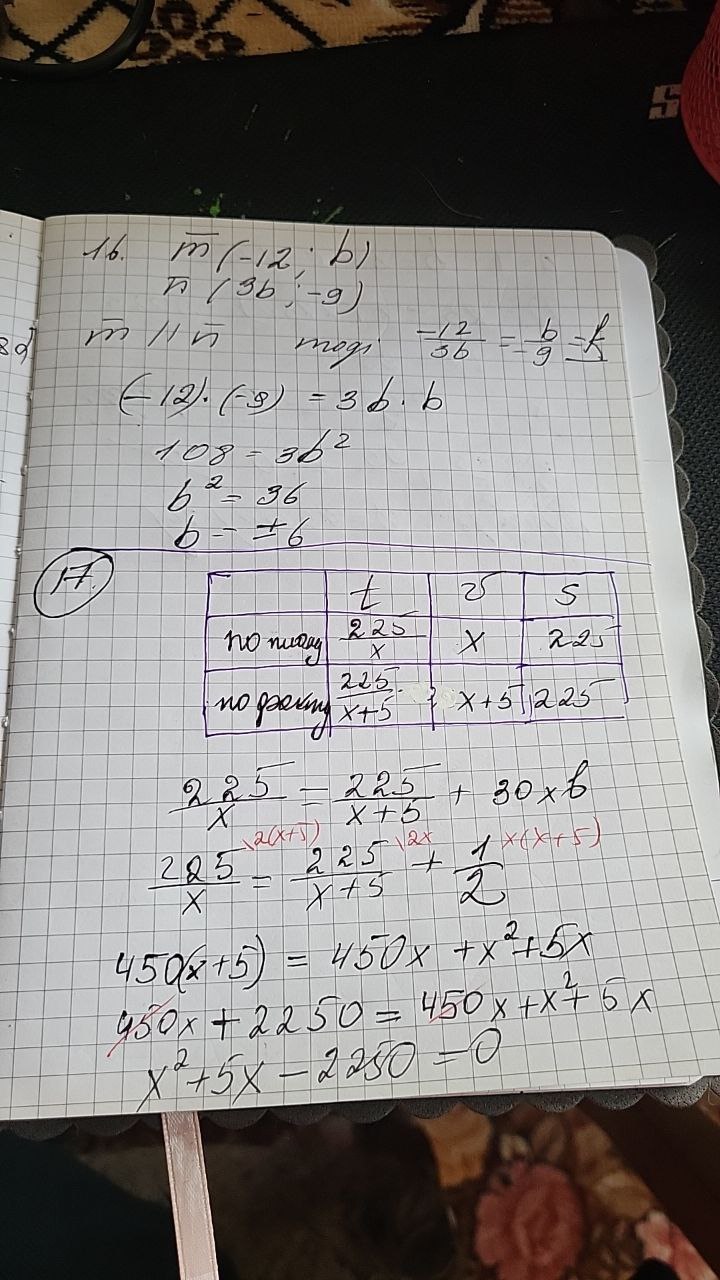 S
16. m̅ (-12 ; b)
n̅ (3b ; -9)
m̅ // n̅ тоді -12/3b = b/-9 = k
(-12)·(-9) = 3b·b
108 = 3b²
b² = 36
b = ±6
17.
t v s
по плану 225/x x 225
по факту 225/x+5 x+5 225
225/x = 225/x+5 + 30 хв
225/x \2(x+5) = 225/x+5 \2x + 1/2 x(x+5)
450(x+5) = 450x + x²+5x
450x + 2250 = 450x + x² + 5x
x² + 5x - 2250 = 0